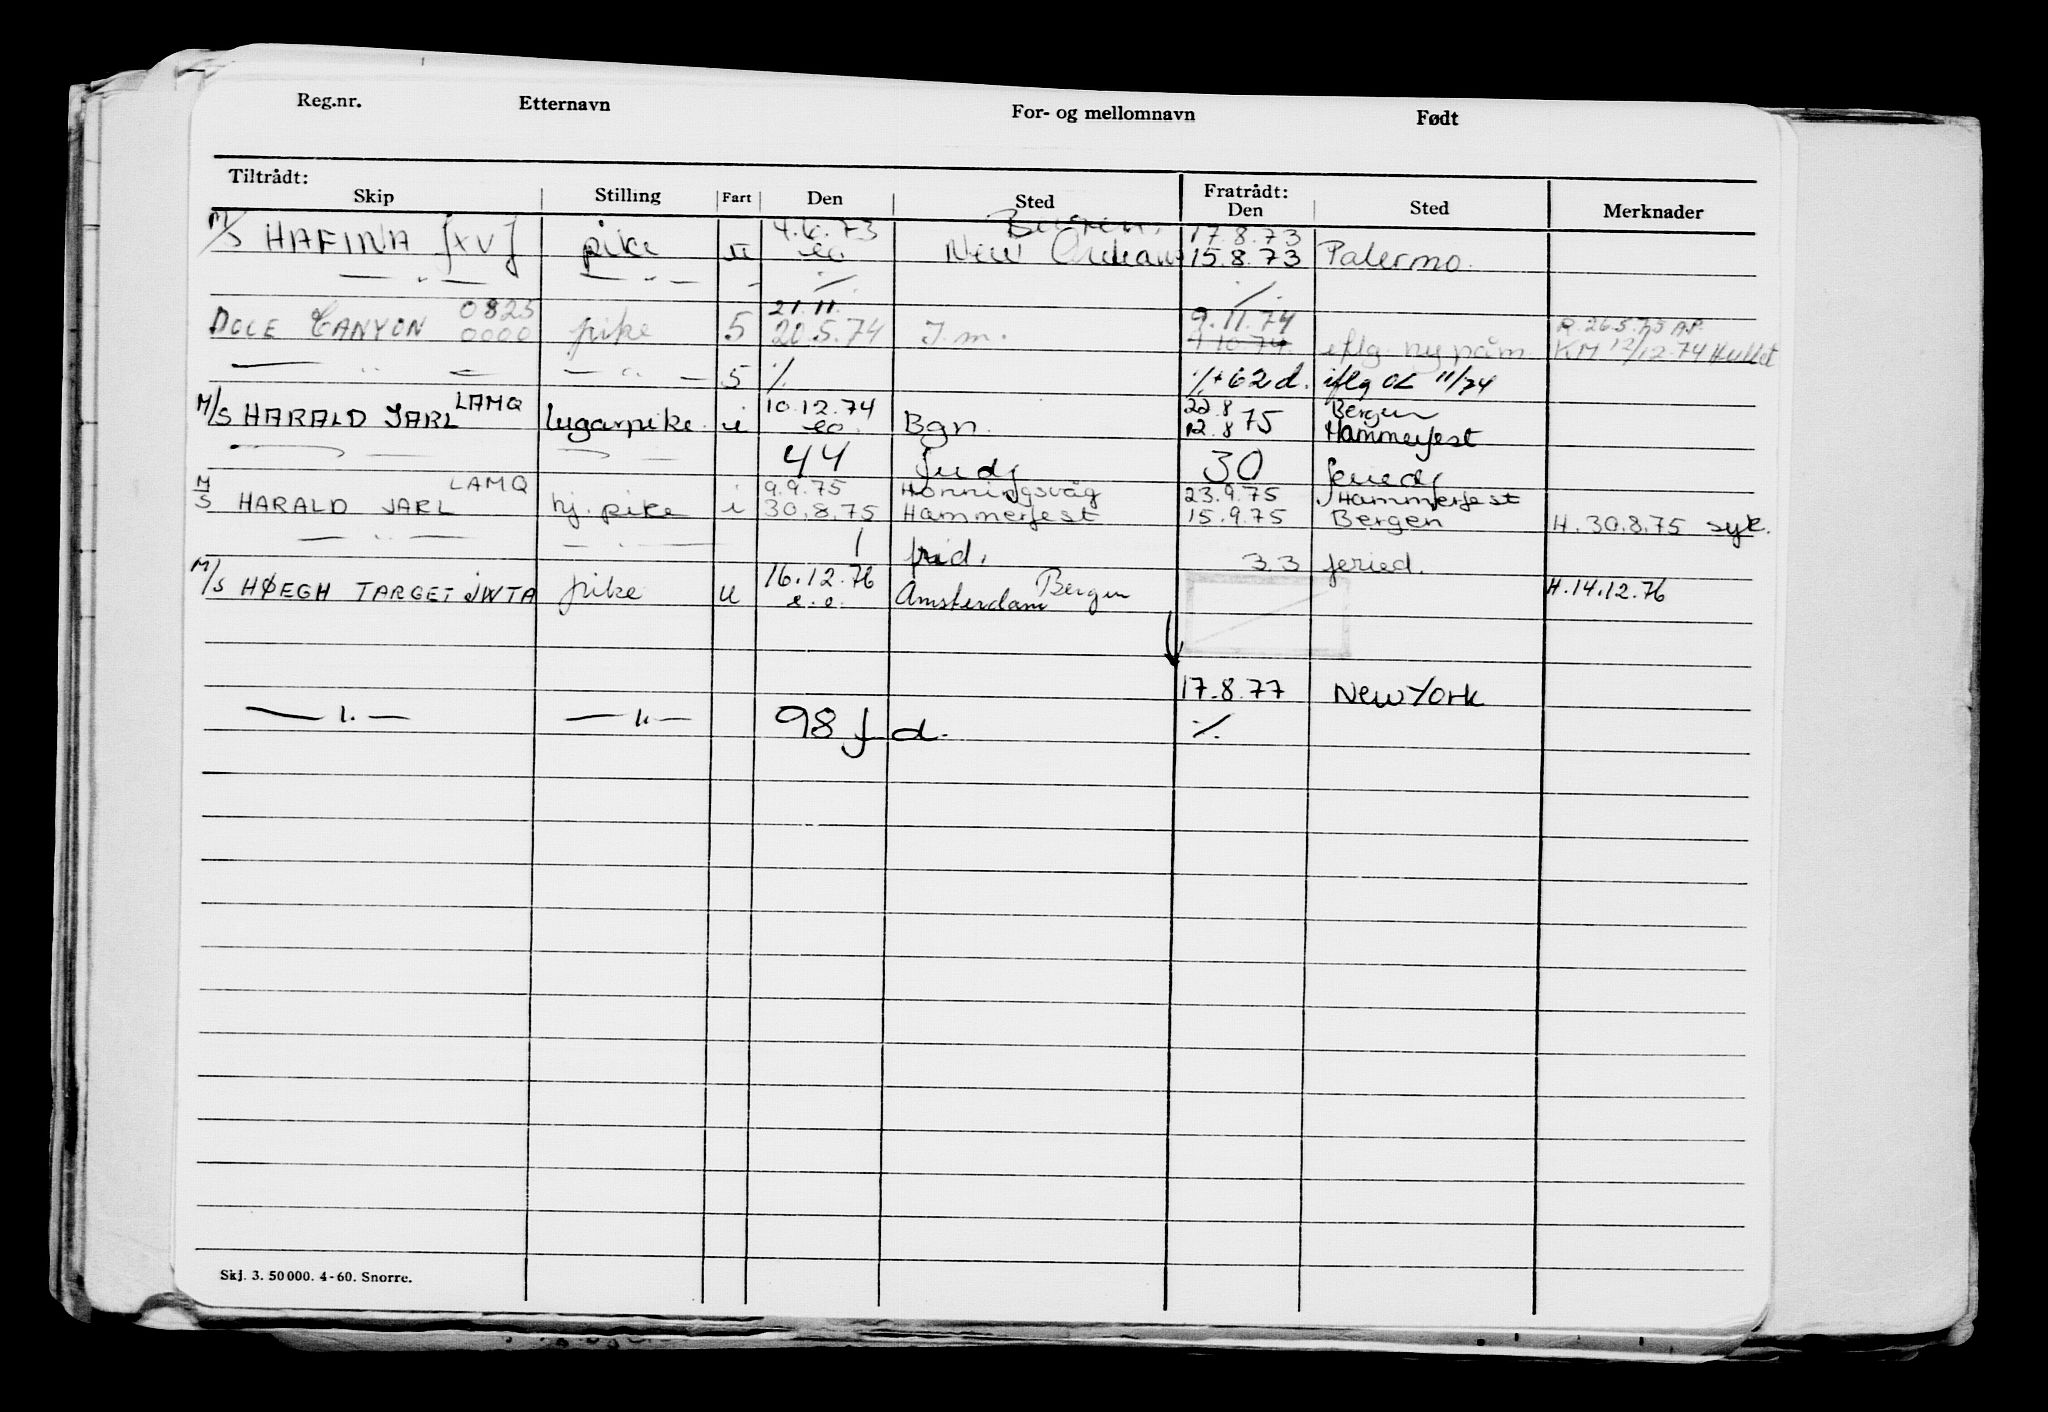 Reg.nr. Etternavn For- og mellomnavn Født
Tiltrådt: Fratrådt:
Skip Stilling Fart Den Sted Den Sted Merknader
4.6.73 Bergen. 17.8.73
M/S HAFINA JXVJ pike u eo New Orleans 15.8.73 Palermo.
— " — — " — " ./. ./.
0825 21.11. 9.11.74 R. 26.5.75 A.P.
DOLE CANYON 0000 pike 5 20.5.74 I.m. 9.10.74. iflg. ny påm KM 12/12.74 Hullet
— " — — " — 5 ./. ./.+62 d. iflg OL 11/74
LAMQ 10.12.74 22.8 Bergen
M/S HARALD JARL lugarpike. i eo. Bgn. 12.8 75 Hammerfest
— — — — 44 30 feriedg
M LAMQ 9.9.75 Honningsvåg 23.9.75 Hammerfest
S HARALD JARL hj. pike i 30.8.75 Hammerfest 15.9.75 Bergen H. 30.8.75 syk.
— " — — " — 1 frid. 33 feried.
16.12.76 Bergen
M/S HØEGH TARGET JWTA pike u e.o. Amsterdam H.14.12.76
17.8.77 New York
— " — — " — 98 f d. ./.
Skj. 3. 50 000. 4-60. Snorre.